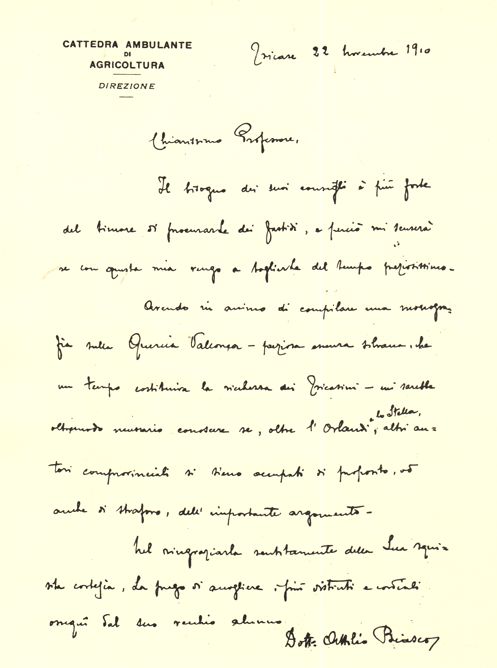 CATTEDRA AMBULANTE
DI
AGRICOLTURA
DIREZIONE
Tricase 22 novembre 1910
Chiarissimo Professore,
Il bisogno dei suoi consigli è più forte
del timore di procurarle dei fastidi, e perciò mi scuserà
se con questa mia vengo a toglierle del tempo preziosissimo -
Avendo in animo di compilare una monogra=
fia sulla Quercia Vallonea - preziosa essenza silvana, che
un tempo costituiva la ricchezza dei Tricasini - mi sarebbe
oltremodo necessario conoscere se, oltre l'Orlandi e lo Stella, altri au=
tori comprovinciali si sieno occupati di proposito, od
anche di straforo, dell'importante argomento -
Nel ringraziarla sentitamente della Sua squi=
sita cortesia, La prego di accogliere i più distinti e cordiali
ossequi dal suo vecchio alunno
Dott. Attilio Biasco